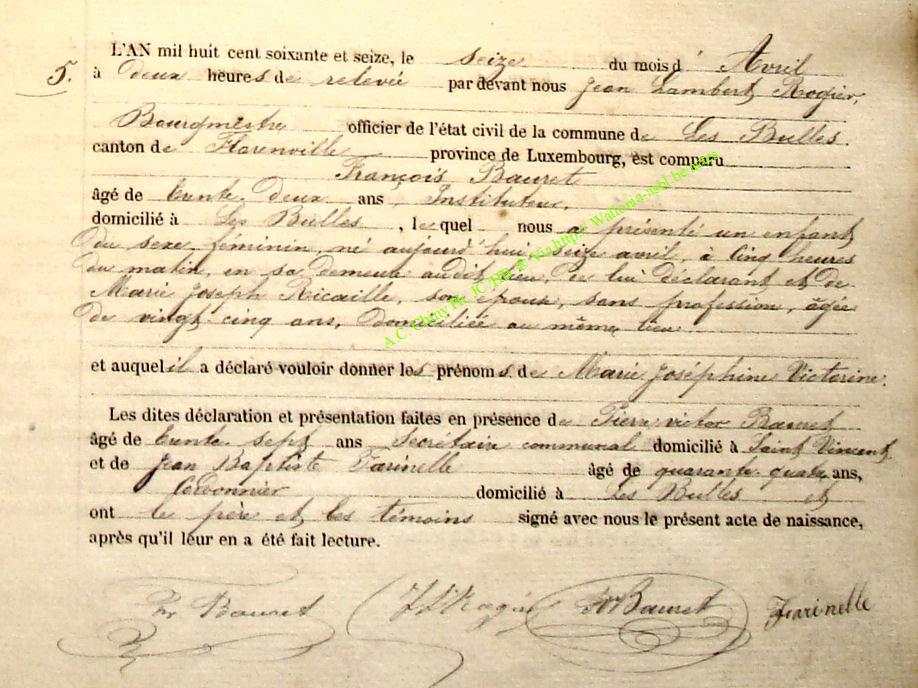 L'AN mil huit cent soixante et seize, le seize du mois d' Avril
5. à deux heures de relevée par devant nous Jean Lambert Rogier,
Bourgmestre officier de l'état civil de la commune de Les Bulles.
canton de Florenville province de Luxembourg, est comparu
François Bauret
âgé de trente-deux ans, Instituteur,
domicilié à Les Bulles, lequel nous a présenté un enfant
du sexe féminin, né aujourd'hui, seize avril, à cinq heures
du matin, en sa demeure audit lieu, de lui déclarant et de
Marie Joseph Ricaille, son épouse, sans profession, âgée
de vingt-cinq ans, domiciliée au même lieu
et auquel il a déclaré vouloir donner les prénoms de Marie Joséphine Victorine.
Les dites déclaration et présentation faites en présence de Pierre victor Bauret
âgé de trente-sept ans secrétaire communal domicilié à Saint Vincent
et de Jean Baptiste Farinelle âgé de quarante-quatre ans,
Cordonnier domicilié à Les Bulles et
ont le père et les témoins signé avec nous le présent acte de naissance,
après qu'il leur en a été fait lecture.
Fr Bauret JL Rogier Bauret Farinelle
A.C. Chiny